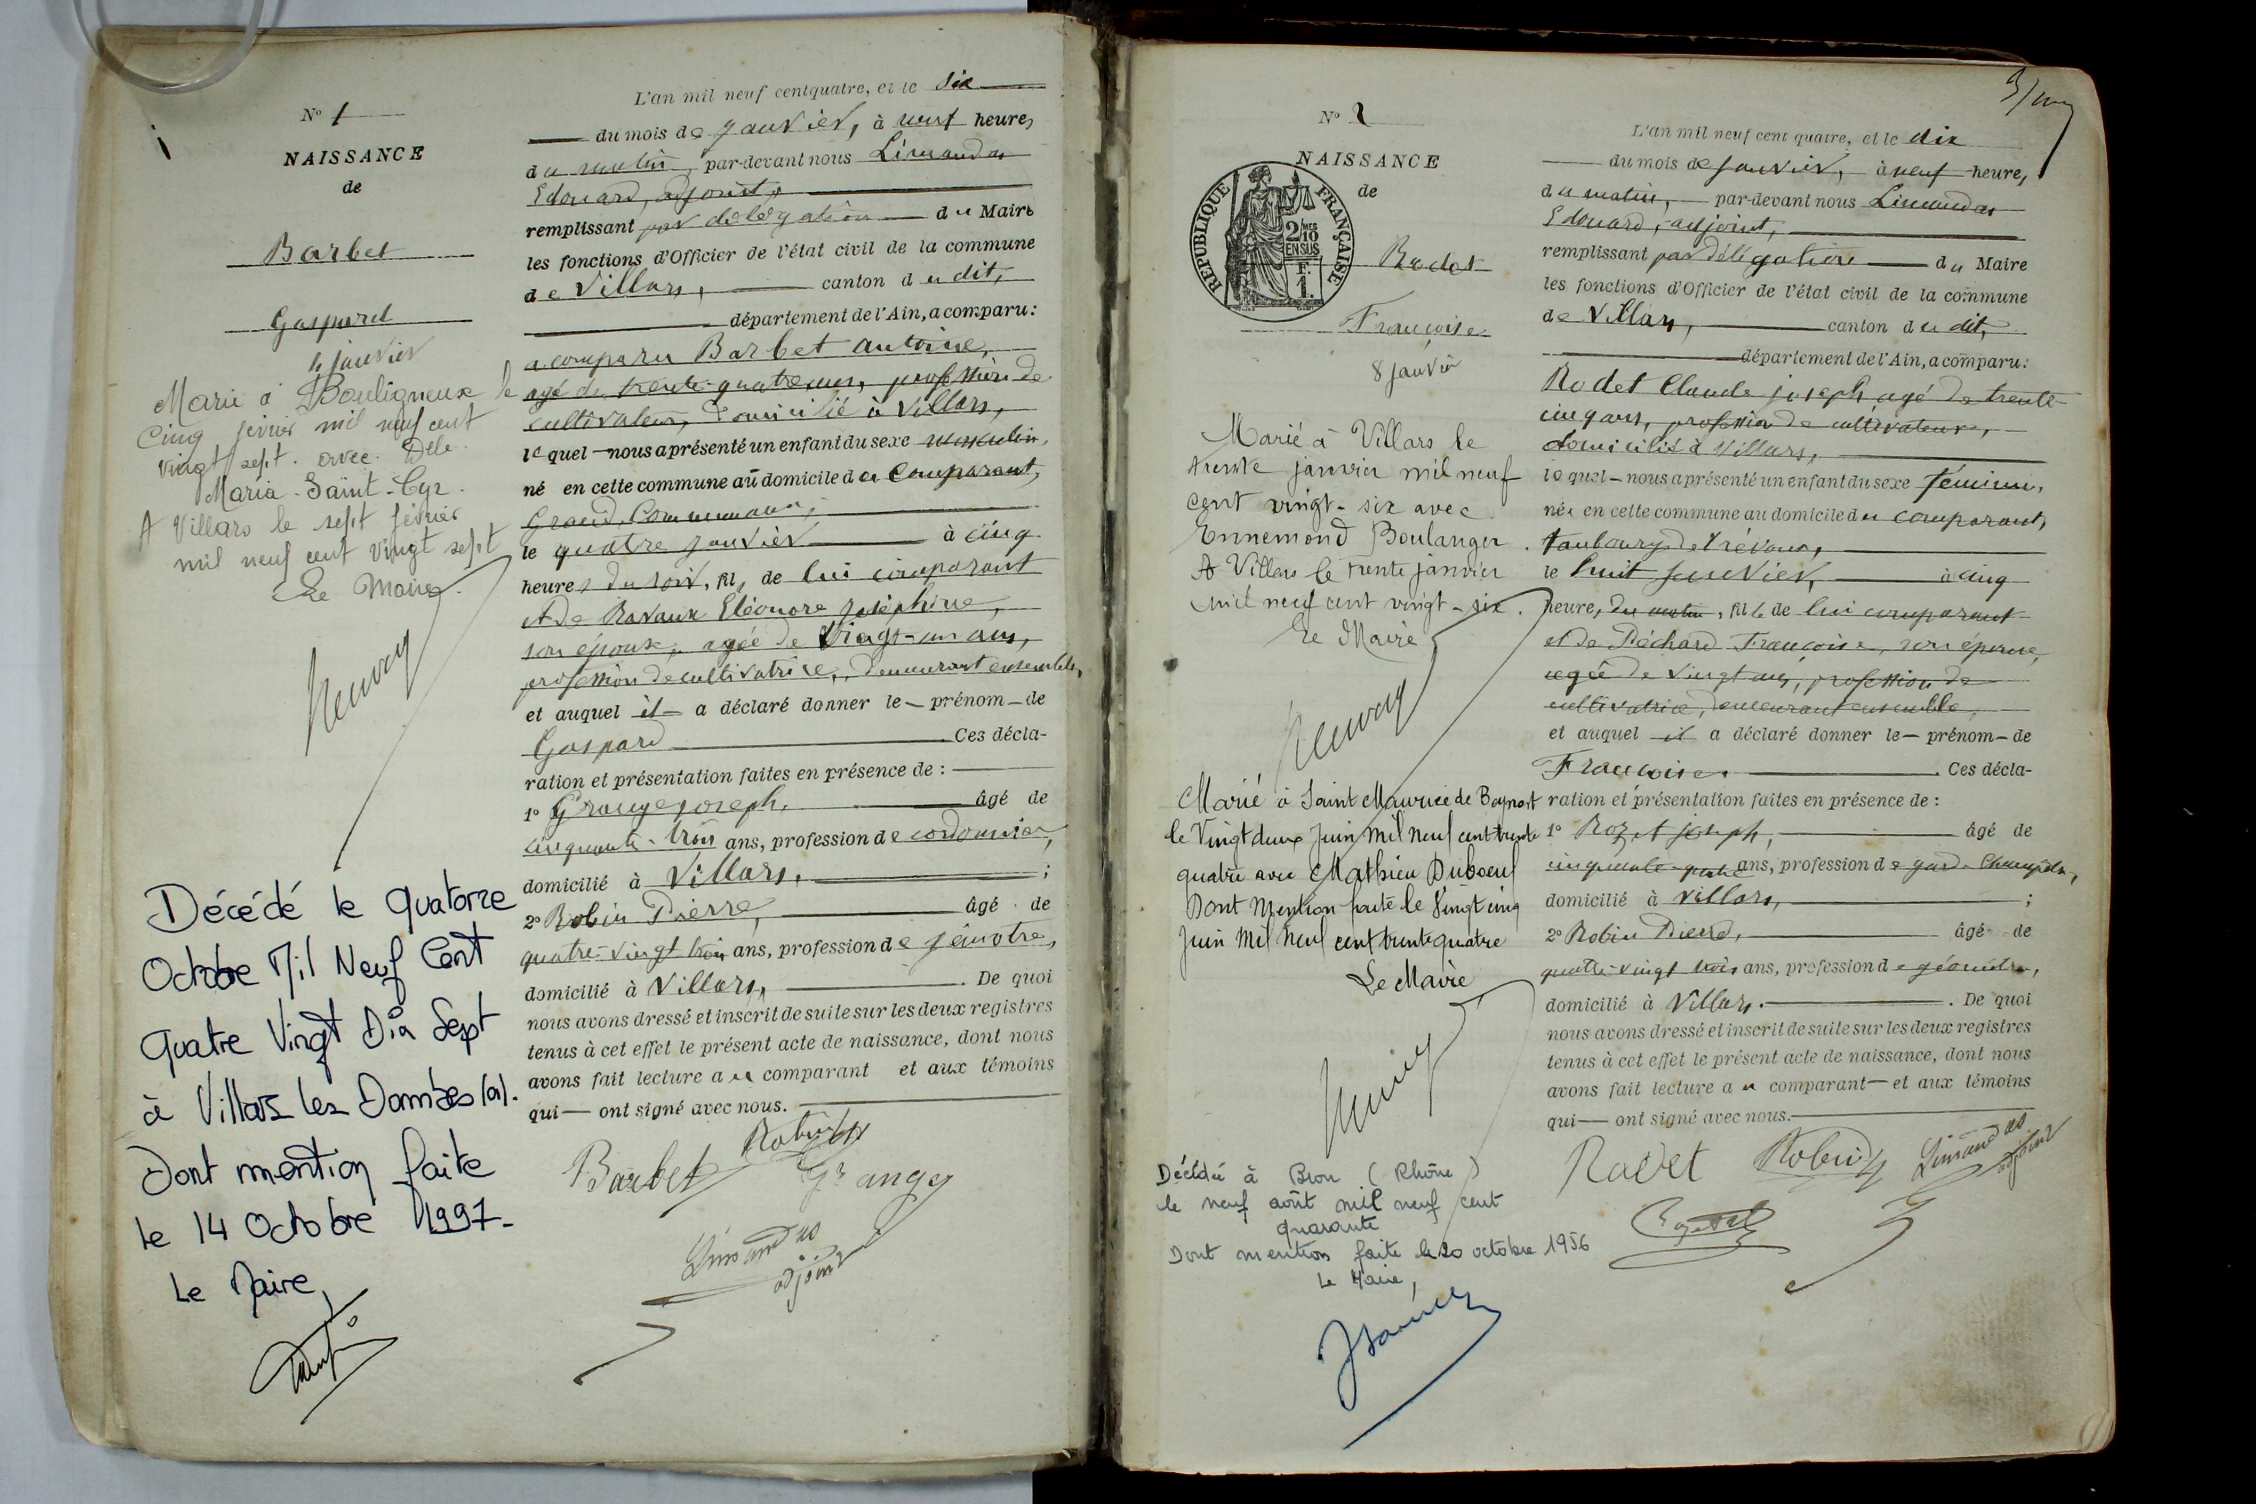 N° 1
NAISSANCE
de
Barbet
Gaspard
4 janvier
Marié à Bouligneux le
cinq février mil neuf cent
vingt sept. avec Delle
Maria Saint-Cyr.
A Villars le sept février
mil neuf cent vingt sept
Le Maire.
Décédé le quatorze
Octobre Mil Neuf Cent
Quatre Vingt Dix Sept
à Villars les Dombes (01).
Dont mention faite
le 14 Octobre 1997-
Le Maire,
L'an mil neuf cent quatre, et le six
du mois de janvier, à neuf heure,
du matin, par-devant nous Limandas
Edouard, adjoint,
remplissant par délégation du Maire
les fonctions d'Officier de l'état civil de la commune
de Villars, canton du dit,
département de l'Ain, a comparu:
a comparu Barbet Antoine,
agé de trente-quatre ans, profession de
cultivateur, domicilié à Villars,
lequel nous a présenté un enfant du sexe masculin,
né en cette commune au domicile du comparant,
Grand Communaux,
le quatre janvier à cinq
heures du soir, fils de lui comparant
et de Ravaux Eléonore Joséphine,
son épouse, agée de vingt-un ans,
profession de cultivatrice, demeurant ensemble,
et auquel il a déclaré donner le prénom de
Gaspard Ces décla-
ration et présentation faites en présence de :
1° Grange Joseph, âgé de
cinquante-trois ans, profession de cordonnier,
domicilié à Villars, ;
2° Robin Pierre, âgé de
quatre-vingt trois ans, profession de géomètre,
domicilié à Villars, . De quoi
nous avons dressé et inscrit de suite sur les deux registres
tenus à cet effet le présent acte de naissance, dont nous
avons fait lecture au comparant et aux témoins
qui ont signé avec nous.
Barbet Robin
Grange
Limandas
adjoint
N° 2
NAISSANCE
de
REPUBLIQUE FRANÇAISE
2/10MES
EN SUS
F.
1.
Rodet
Françoise
8 janvier
Marié à Villars le
trente janvier mil neuf
cent vingt-six avec
Ennemond Boulanger.
A Villars le trente janvier
mil neuf cent vingt-six.
Le Maire
Marié à Saint Maurice de Beynost
le Vingt deux Juin mil neuf cent trente
quatre avec Mathieu Duboeuf
Dont mention faite le Vingt cinq
Juin Mil Neuf cent trente quatre
Le Maire
Décédée à Bron (Rhône)
le neuf août mil neuf cent
quarante
Dont mention faite le 20 octobre 1956
Le Maire,
L'an mil neuf cent quatre, et le dix
du mois de janvier, à neuf heure,
du matin, par-devant nous Limandas
Edouard, adjoint,
remplissant par délégation du Maire
les fonctions d'Officier de l'état civil de la commune
de Villars, canton du dit,
département de l'Ain, a comparu:
Rodet Claude joseph agé de trente
cinq ans, profession de cultivateur,
domicilié à Villars,
lequel nous a présenté un enfant du sexe féminin,
née en cette commune au domicile du comparant,
faubourg de Trévoux,
le huit janvier, à cinq
heure, du matin, fille de lui comparant
et de Péchard Françoise, son épouse,
agée de vingt ans, profession de
cultivatrice, demeurant ensemble,
et auquel il a déclaré donner le prénom de
Françoise. Ces décla-
ration et présentation faites en présence de :
1° Rozet joseph, âgé de
cinquante-quatre ans, profession de garde champêtre,
domicilié à Villars, ;
2° Robin Pierre, âgé de
quatre-vingt trois ans, profession de géomètre,
domicilié à Villars. . De quoi
nous avons dressé et inscrit de suite sur les deux registres
tenus à cet effet le présent acte de naissance, dont nous
avons fait lecture au comparant et aux témoins
qui ont signé avec nous.
Rodet Robin Limandas
adjoint